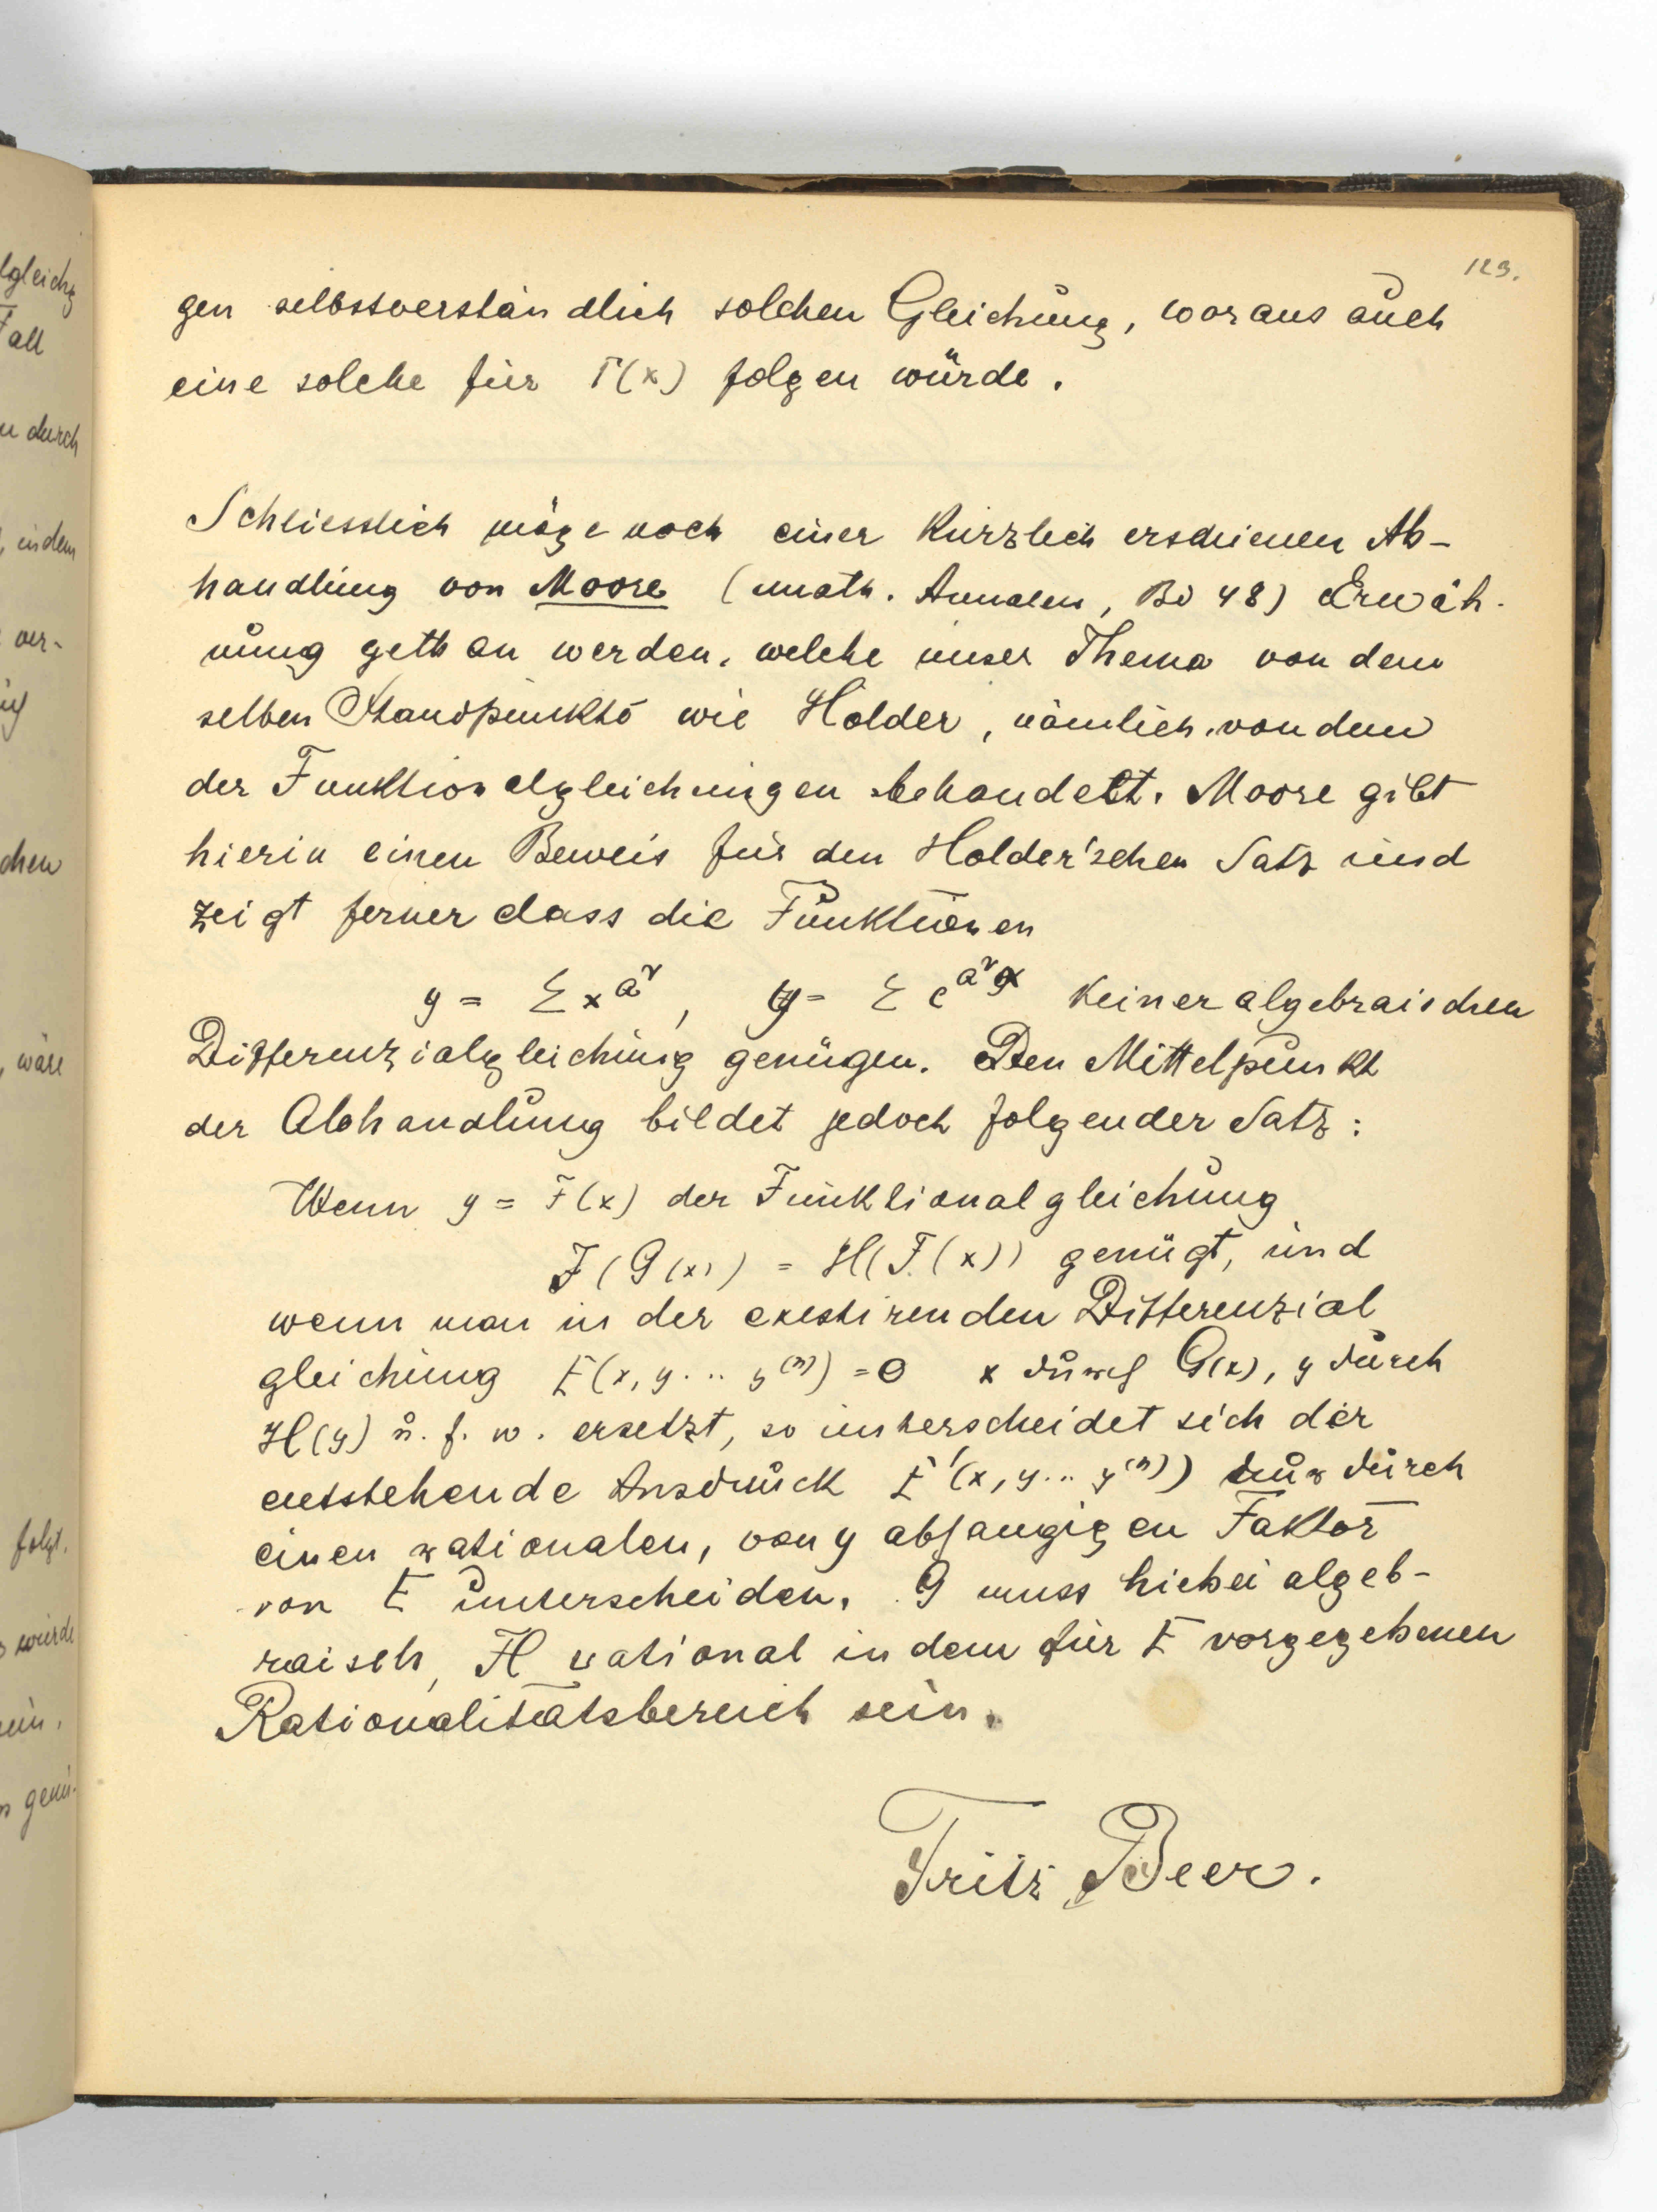 lgleichg
Fall
u durch
, indem
ver-
chen
, wäre
folgt.
würde
genü-
123.
gen selbstverständlich solchen Gleichung, woraus auch
eine solche für Γ(x) folgen würde.
Schliesslich möge noch einer kürzlich erschienen Ab-
handlung von Moore (math. Annalen, Bd 48) Erwäh-
nung gethan werden, welche unser Thema von dem
selben Standpunkte wie Hölder, nämlich von dem
der Funktionalgleichungen behandelt. Moore gibt
hierin einen Beweis für den Holder'schen Satz und
zeigt ferner dass die Funktionen
y = Σ x^{a^ν}, y = Σ e^{a^ν x} keiner algebraischen
Differenzialgleichung genügen. Den Mittelpunkt
der Abhandlung bildet jedoch folgender Satz:
Wenn y = F(x) der Funktionalgleichung
F(G(x)) = H(F(x)) genügt, und
wenn man in der existirenden Differenzial
gleichung E(x, y .. y^{(n)}) = 0 x durch G(x), y durch
H(y) u. s. w. ersetzt, so unterscheidet sich der
entstehende Ausdruck E'(x, y .. y^{(n)}) nur durch
einen rationalen, von y abhängigen Faktor
von E unterscheiden. G muss hiebei algeb-
raisch, H rational in dem für E vorgegebenen
Rationalitätsbereich sein.
Fritz Beer.